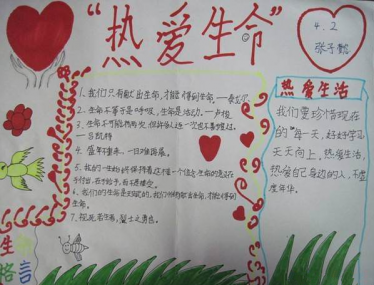 “热爱生命”
4.2
热爱生活
我们要珍惜现在
的每一天,好好学习
天天向上。热爱生活,
热爱自己身边的人,不虚
度年华。
1、我们只有献出生命,才能得到生命。——泰戈尔
2、生命不等于是呼吸,生命是活动。——卢梭
3、生命不可能有两次,但许多人连一次也不善于度过。
——吕凯特
4、盛年不重来,一日难再晨。
5、我的一生始终保持着这样一个信念生命的意义在
于付出,在于给予,而不是
6、我们的生命是天赋的,我们惟有献出生命,才能得到
生命。
7、视死若生者,烈士之勇也。
生
命
格
言